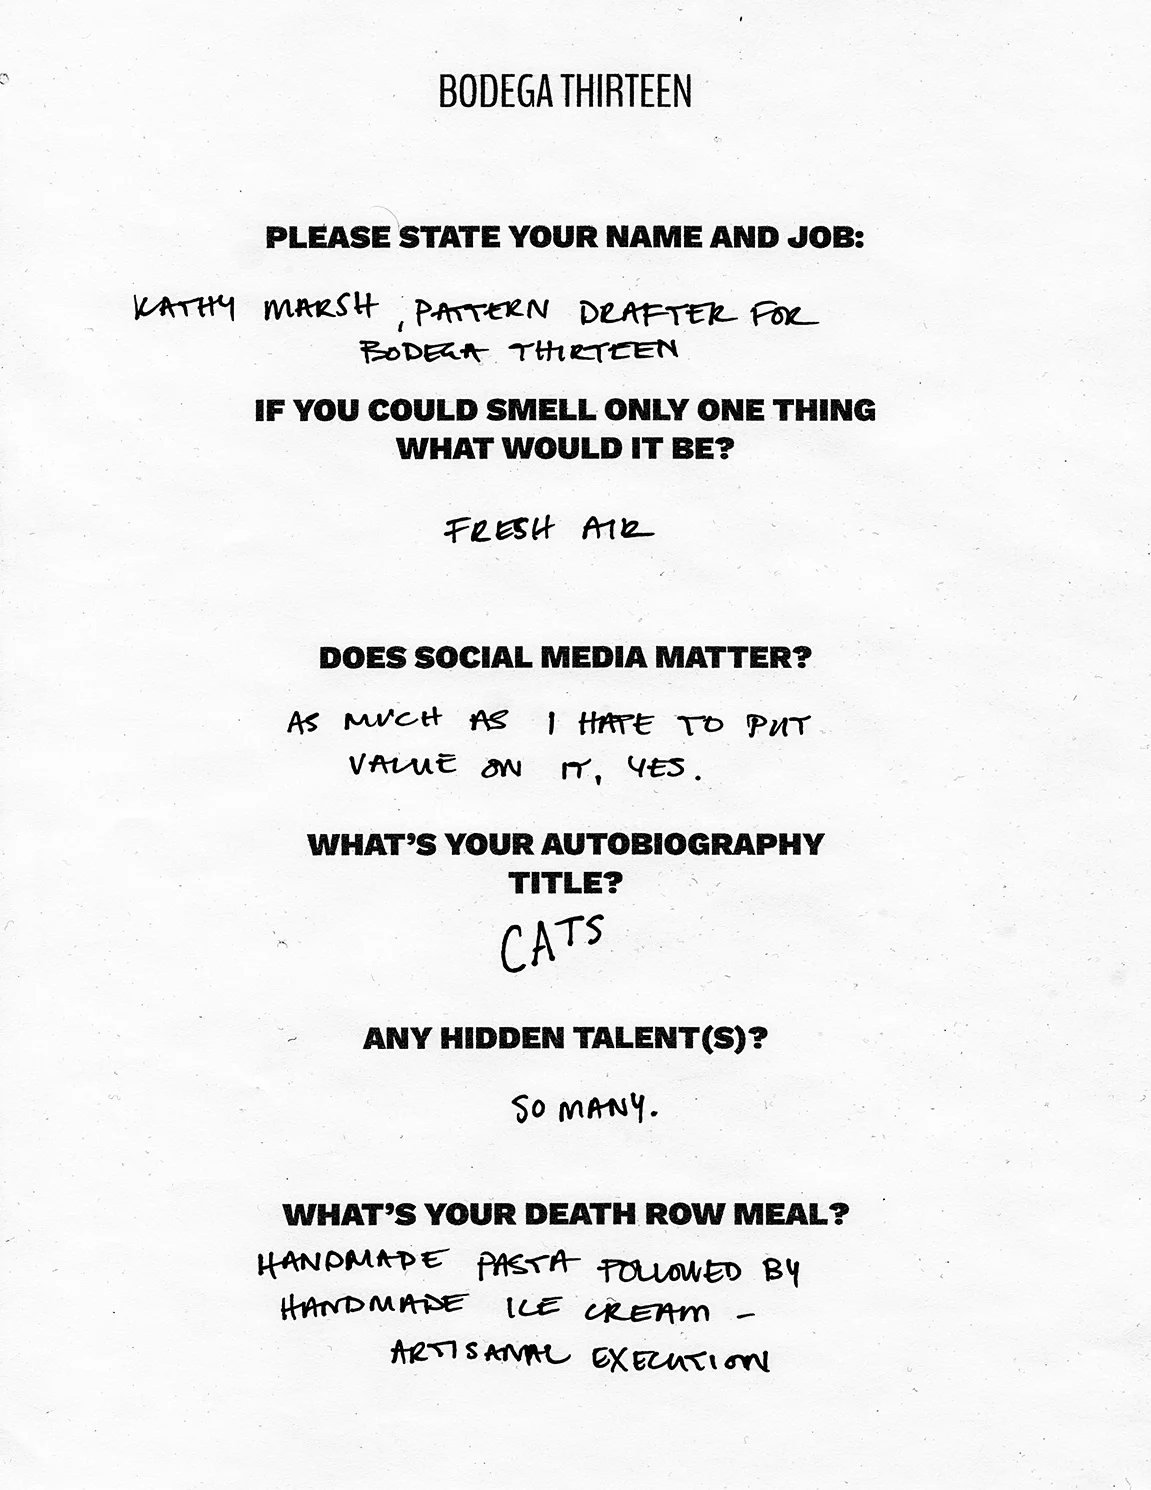 BODEGA THIRTEEN
PLEASE STATE YOUR NAME AND JOB:
KATHY MARSH, PATTERN DRAFTER FOR
BODEGA THIRTEEN
IF YOU COULD SMELL ONLY ONE THING
WHAT WOULD IT BE?
FRESH AIR
DOES SOCIAL MEDIA MATTER?
AS MUCH AS I HATE TO PUT
VALUE ON IT, YES.
WHAT'S YOUR AUTOBIOGRAPHY
TITLE?
CATS
ANY HIDDEN TALENT(S)?
SO MANY.
WHAT'S YOUR DEATH ROW MEAL?
HANDMADE PASTA FOLLOWED BY
HANDMADE ICE CREAM –
ARTISANAL EXECUTION